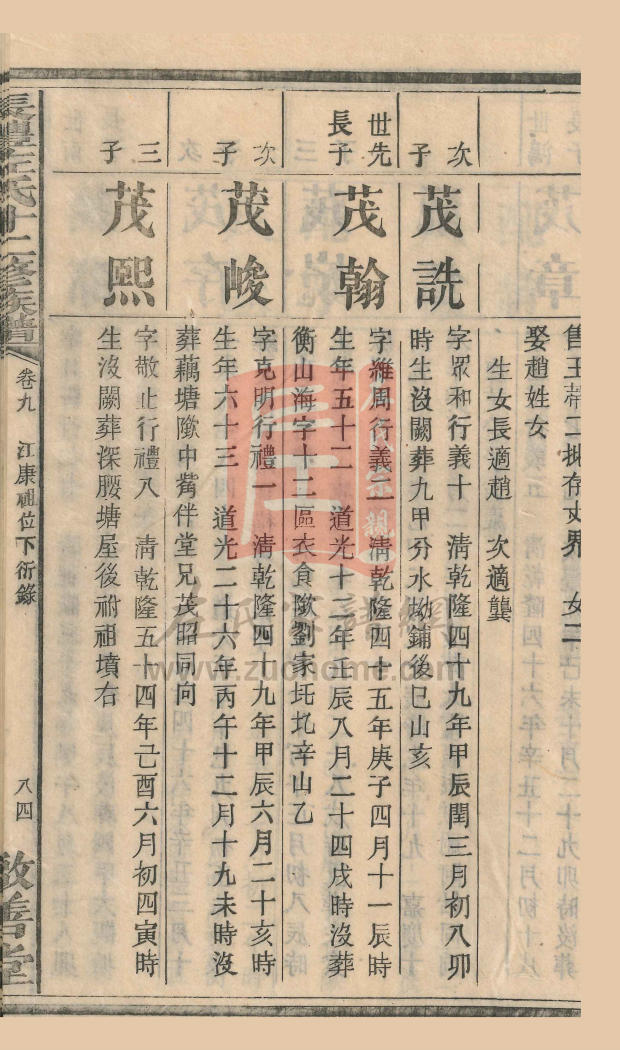 娶趙姓女
生女長適趙　次適龔
次子
茂詵
字眾和行義十　清乾隆四十九年甲辰閏三月初八卯
時生沒闕葬九甲分水坳鋪後巳山亥
世先長子
茂翰
字維周行義二　清乾隆四十五年庚子四月十一辰時
生年五十二　道光十二年壬辰八月二十四戌時沒葬
衡山海字十二區衣食隞劉家圫圠辛山乙
次子
茂峻
字克明行禮一　清乾隆四十九年甲辰六月二十亥時
生年六十三　道光二十六年丙午十二月十九未時沒
葬藕塘隞中觜伴堂兄茂昭同向
三子
茂熙
字敬止行禮八　清乾隆五十四年己酉六月初四寅時
生沒闕葬深腰塘屋後祔祖墳右
左氏十二修族譜
卷九　江康祖位下衍錄
八四
敬善堂
左氏家譜網
www.zuohome.com